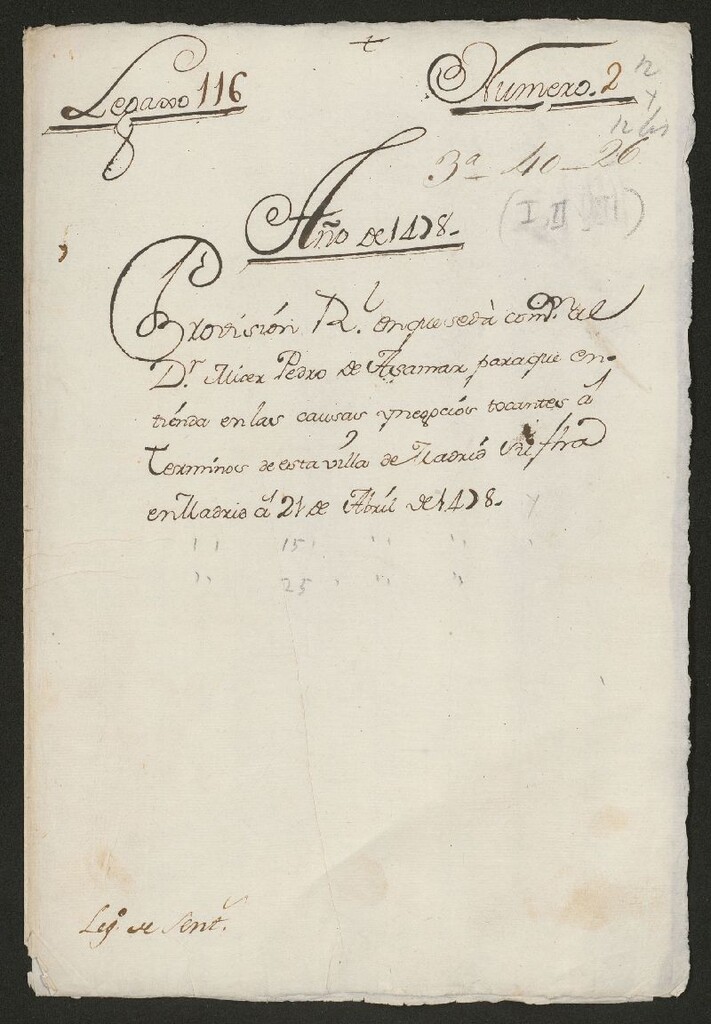 +
Legaxo 116
Numero. 2
12
y
12 bis
3ª 40-26
(I, II, III)
Año de 1478.
Provisión Rl. en que se dà comon. al
Dr. Micer Pedro de Asamar para que en-
tienda en las causas y negocios tocantes á
Terminos de esta villa de Madrid
en Madrid á 21 de Abril de 1478.
" " 15 " " "
" 25 " " "
Lego. de Sent.